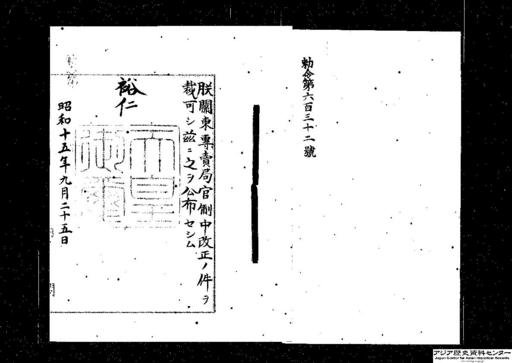 勅令第六百三十二號
朕關東專賣局官制中改正ノ件ヲ
裁可シ茲ニ之ヲ公布セシム
裕仁
天皇御璽
昭和十五年九月二十五日
アジア歴史資料センター
Japan Center for Asian Historical Records